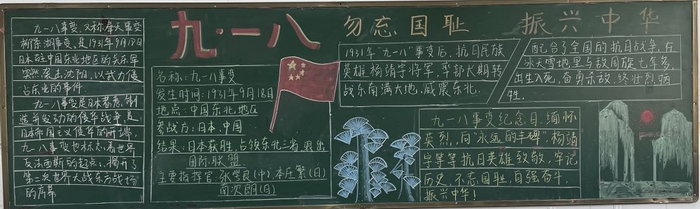 九一八事变,又称奉天事变
柳条湖事变、是1931年9月18日
日本在中国东北地区的关东军
突然袭击沈阳,以武力侵
占东北的事件
九一八事变是日本蓄意制
造并发动的侵华战争,是
日本帝国主义侵华的开端
九一八事变也标志着世界
反法西斯的起点,揭开了
第二次世界大战东方战场
的序幕
九·一八
名称:九一八事变
发生时间:1931年9月18日
地点:中国东北地区
参战方:日本、中国
结果:日本获胜,占领东北三省 退出
国际联盟
主要指挥官:张学良(中)本庄繁(日)
南次郎(日)
勿忘国耻 振兴中华
1931年"九一八"事变后,抗日民族
英雄杨靖宇将军,率部长期转
战东南满大地,威震东北.
配合了全国的抗日战争,在
冰天雪地里与敌周旋七年多,
出生入死,奋勇杀敌,终壮烈牺
牲.
九一八事变纪念日,缅怀
英烈,向"永远的丰碑,杨靖
宇等等抗日英雄致敬,牢记
历史,不忘国耻,自强奋斗,
振兴中华!